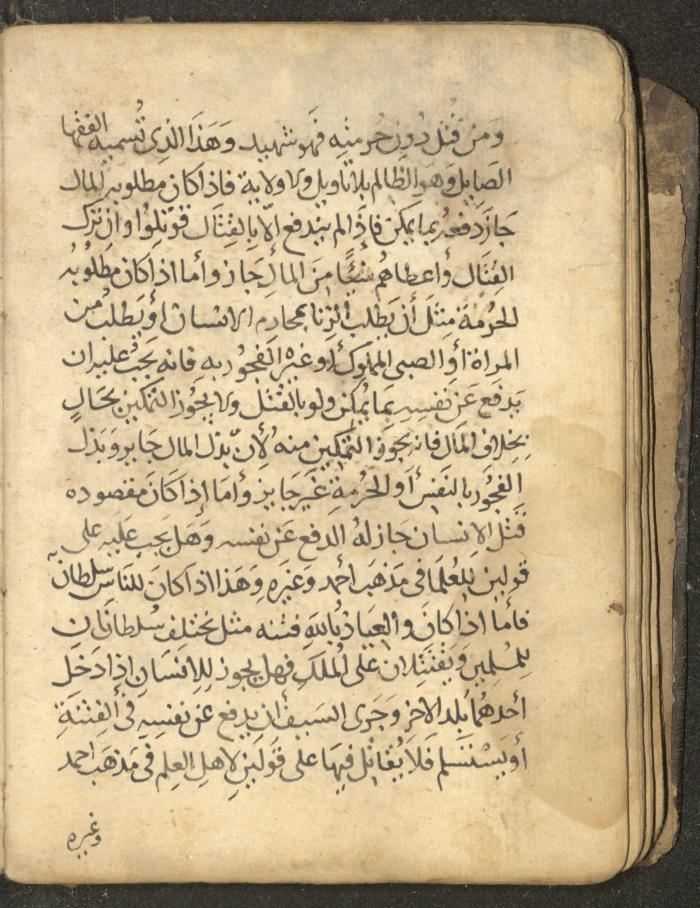 ومن قتل دون حرمته فهو شهيد وهذا الذى تسميه الفقها
الصايل وهو الظالم بلا تاويل ولا ولاية فاذا كان مطلوبه المال
جاز دفعه بما يمكن فاذا لم يندفع الا بالقتال قوتلوا وان ترك
القتال وأعطاهم شيئا من المال جاز وأما اذا كان مطلوبه
الحرمة مثل أن يطلب الزنا بمحارم الانسان أو يطلب من
المراة أو الصبى المملوك او غيره الفجور به فانه يجب عليه ان
يدفع عن نفسه بما يمكن ولو بالقتل ولا يجوز التمكين بحال
بخلاف المال فانه يجوز التمكين منه لأن بذل المال جايز وبذل
الفجور بالنفس أو الحرمة غير جايز وأما إذا كان مقصوده
قتل الانسان جاز له الدفع عن نفسه وهل يجب عليه على
قولين للعلما فى مذهب أحمد وغيره وهذا اذا كان للناس سلطان
فأما اذا كان والعياذ بالله فتنه مثل يختلف سلطانان
للمسلمين ويقتتلان على الملك فهل يجوز للانسان إذا دخل
أحدهما بلد الاخر وجرى السيف أن يدفع عن نفسه فى الفتنة
أو يستسلم فلا يقاتل فيها على قولين لاهل العلم فى مذهب احمد
وغيره